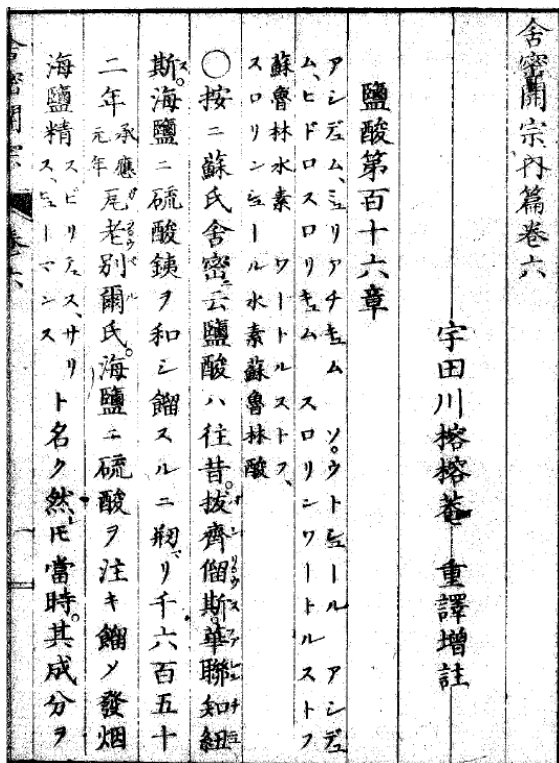 舎密開宗内篇卷六
宇田川榕榕菴 重譯增註
鹽酸第百十六章
アシデュム、ミュリアチキュム ソ。ウトシュール アシデュ
ム、ヒドロスロリキュム スロリンワートルストフ
蘇魯林水素 ワートルストフ、
スロリンシュール 水素蘇魯林酸
○按ニ蘇氏舍密ニ云鹽酸ハ往昔。拔齊僴斯。華聯知紐
斯。海鹽ニ硫酸銕ヲ和シ餾スルニ剏リ千六百五十
二年 承應元年 瓦老別爾氏。海鹽ニ硫酸ヲ注キ餾メ發烟
海鹽精 スピリチュス、サリス、ヒューマンス ト名ク然𪜈當時。其成分ヲ